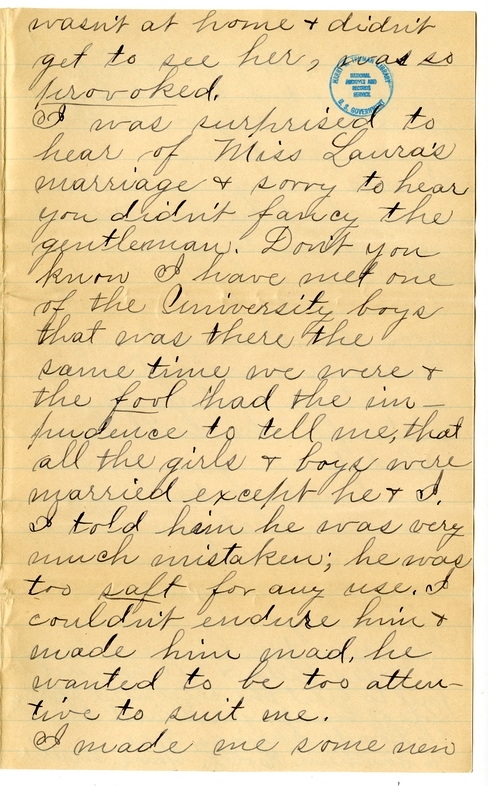 wasn't at home & didn't
get to see her, was so
provoked.
HARRY S. TRUMAN LIBRARY
NATIONAL
ARCHIVES AND
RECORDS
SERVICE
U. S. GOVERNMENT
I was surprised to
hear of Miss Laura's
marriage & sorry to hear
you didn't fancy the
gentleman. Don't you
know I have met one
of the University boys
that was there the
same time we were &
the fool had the im-
pudence to tell me, that
all the girls & boys were
married except he & I.
I told him he was very
much mistaken; he was
too saft for any use. I
couldn't endure him &
made him mad, he
wanted to be too atten-
tive to suit me.
I made me some new